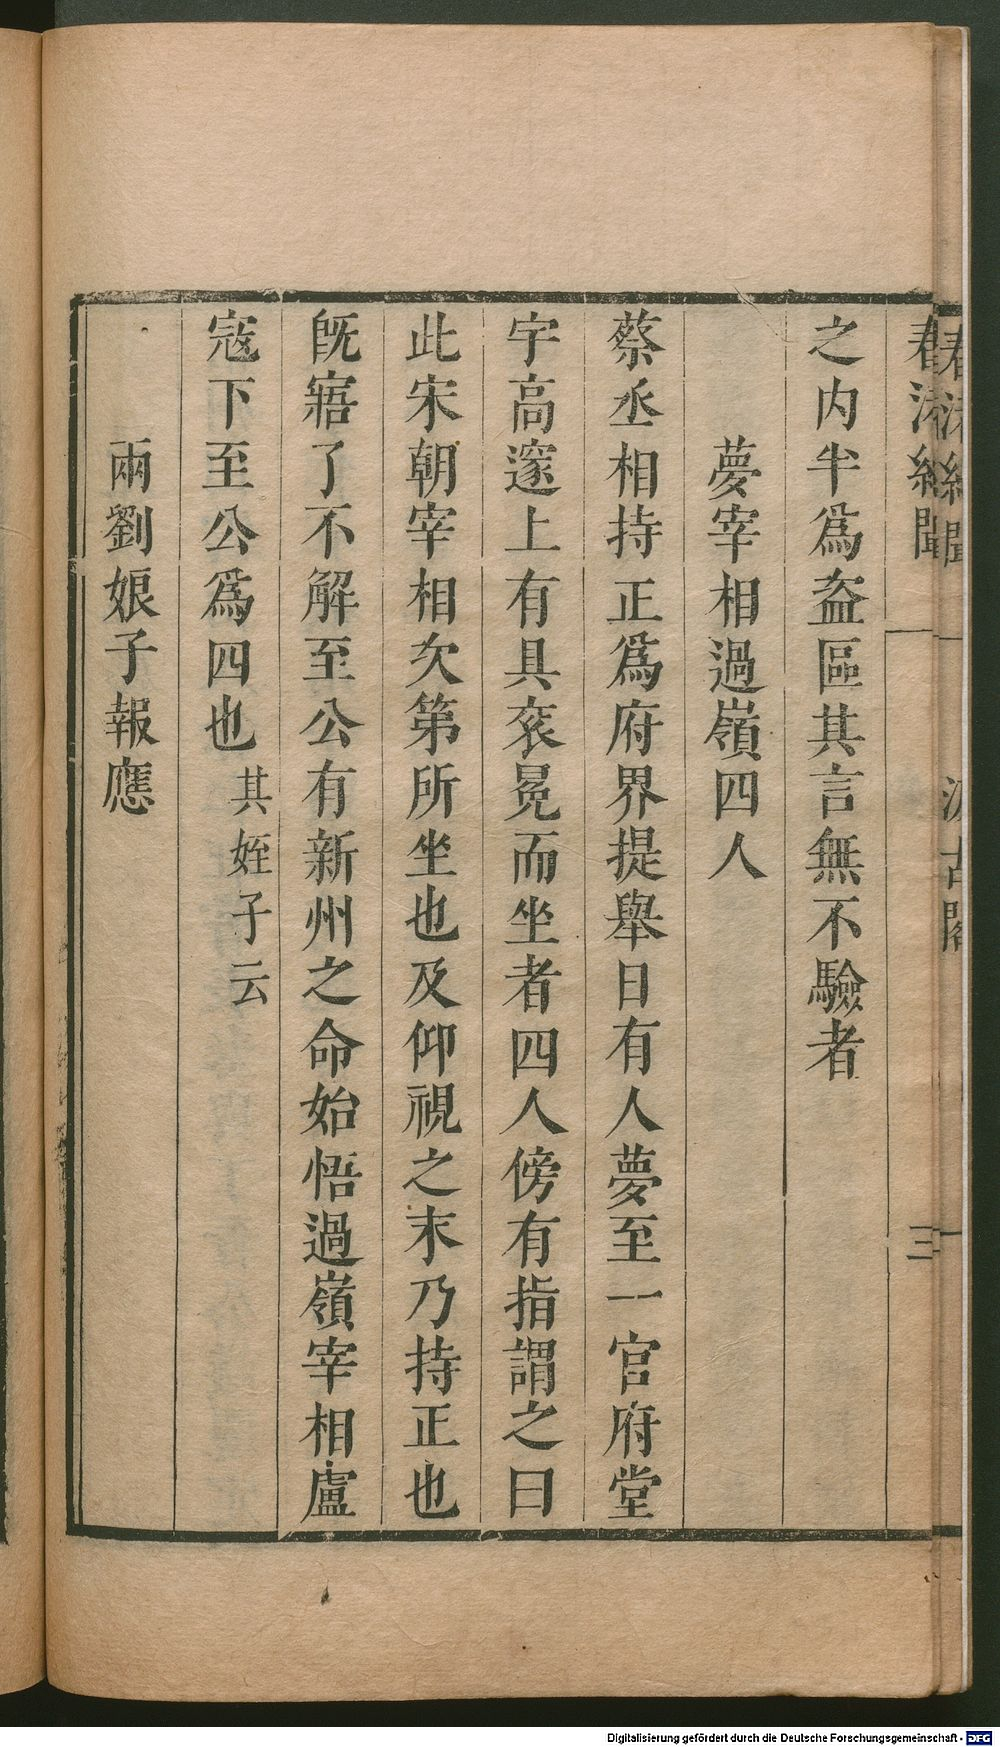 春渚紀聞
三
之内半爲盗區其言無不驗者
夢宰相過嶺四人
蔡丞相持正爲府界提舉日有人夢至一官府堂
宇高邃上有具衮冕而坐者四人傍有指謂之曰
此宋朝宰相次第所坐也及仰視之末乃持正也
旣寤了不解至公有新州之命始悟過嶺宰相盧
寇下至公爲四也其姪子云
兩劉娘子報應
Digitalisierung gefördert durch die Deutsche Forschungsgemeinschaft - DFG